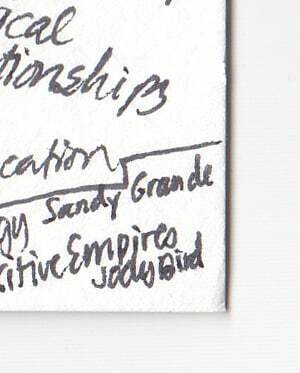 ocal
tionships
cation
gy Sandy Grande
sitive Empires
Jody Bird